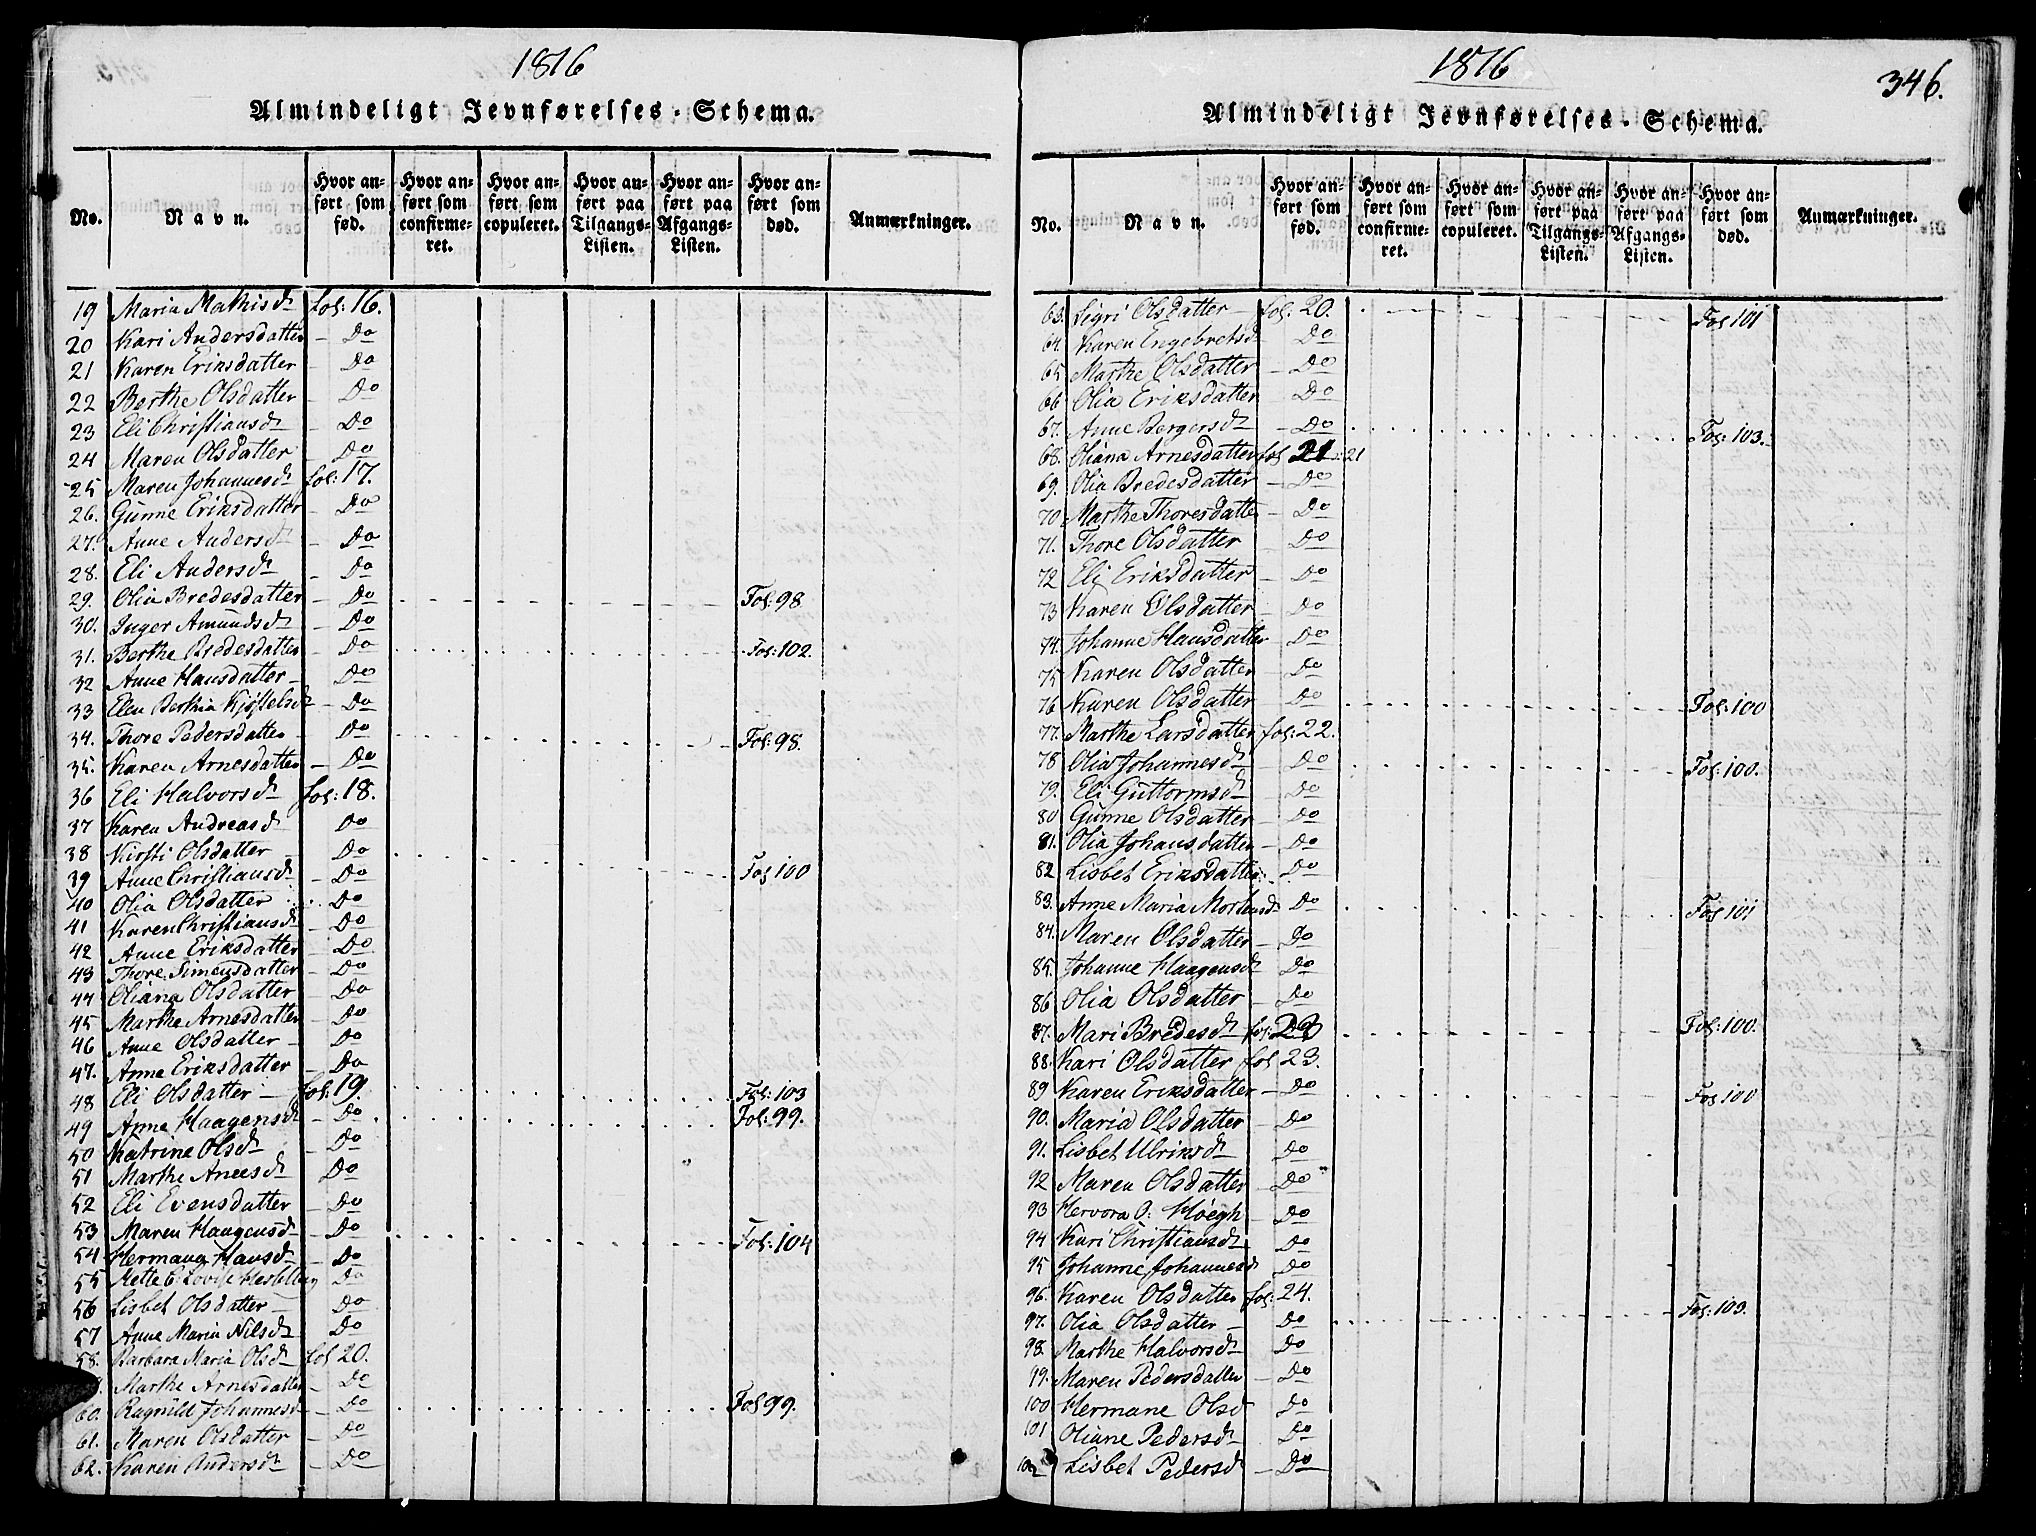 1816
Almindeligt Jevnførelses-Schema.
No. Navn. Hvor anført som fød. Hvor anført som confirmeret. Hvor anført, som copuleret. Hvor anført paa Tilgangs-Listen. Hvor anført paa Afgangs-Listen. Hvor anført som død. Anmærkninger.
19 Maria Mathisd. fol: 16.
20 Kari Andersdatter - Do
21 Karen Eriksdatter - Do
22 Berthe Olsdatter - Do
23 Eli Christiansd. - Do
24 Maren Olsdatter - Do
25 Maren Johannesd. fol: 17.
26. Gunne Eriksdatter - Do
27. Anne Andersd. - Do
28. Eli Andersd. - Do
29. Olia Bredesdatter - Do Fol: 98
30. Inger Amundsd. - Do
31. Berthe Bredesdatter - Do Fol: 102.
32 Anne Hansdatter - Do
33 Elen Berthia - Do
34. Thore Pedersdatter - Do Fol: 98.
35. Karen Arnesdatter - Do
36 Eli Halvorsd. fol: 18.
37 Karen Andreasd. Do
38 Kirsti Olsdatter - Do
39 Anne Christiansd. - Do Fol 100
40 Olia Olsdatter - Do
41 Karen Christiansd. - Do
42 Anne Eriksdatter - Do
43 Thore Simensdatter - Do
44 Oliana Olsdatter - Do
45 Marthe Arnesdatter - Do
46 Anne Olsdatter - Do
47. Anne Eriksdatter - Do
48 Eli Olsdatter - fol: 19. Fol: 103
49 Anne Haagensd. - Do Fol: 99.
50 Katrine Olsd. - Do
51 Marthe - Do
52 Eli Evensdatter - Do
53 Maren Haagensd. - Do Fol: 104
54 Hermana Hansd. - Do
55 Mette C. Lovise - Do
56 Lisbet Olsdatter - Do
57 Anne Maria Nilsd. Do
58. Barbara Maria Olsd. fol 20.
Marthe Arnesdatter - Do
60. Ragnild Johannesd. - Do Fol 99.
61. Maren Olsdatter - Do
62. Karen Andersd. - Do
1816
346.
Almindeligt Jevnførelses-Schema.
No. Navn. Hvor anført som fød. Hvor anført som confirmeret. Hvor anført som copuleret. Hvor anført paa Tilgangs-Listen. Hvor anført paa Afgangs-Listen. Hvor anført som død. Anmærkninger.
63. Sigri Olsdatter - fol: 20. Fol 101
64. Karen Engebretsd. Do
65 Marthe Olsdatter - Do
66 Olia Eriksdatter - Do
67. Anne Bergersd. - Do Fol: 103.
68. Oliana Arnesdatter fol 21 : 21
69. Olia Bredesdatter - Do
70 Marthe Thoresdatter - Do
71. Thore Olsdatter - Do
72 Eli Eriksdatter - Do
73 Karen Olsdatter - Do
74. Johanne Hansdatter - Do
75 Karen Olsdatter - Do
76 Karen Olsdatter - Do Fol: 100
77. Marthe Larsdatter fol: 22.
78 Olia Johannesd. - Do Fol: 100.
79. Eli Guttormsd. - Do
80 Gunne Olsdatter - Do
81. Olia Johansdatter - Do
82 Lisbet Eriksdatter - Do
83. Anne Maria Mortensd. Do Fol 101
84. Maren Olsdatter - Do
85. Johanne Haagensd. Do
86. Olia Olsdatter - Do
87. Mari Bredesd. fol: 23 Fol: 100.
88. Kari Olsdatter fol 23.
89 Karen Eriksdatter - Do Fol 100
90. Maria Olsdatter - Do
91. Lisbet Ulriksd. Do
92 Maren Olsdatter - Do
93 Hervora O: Høegh - Do
94 Kari Christiansd. Do
95 Johanne Johannesd. Do
96. Karen Olsdatter fol: 24.
97. Olia Olsdatter - Do Fol: 103.
98. Marthe Halvorsd. - Do
99. Maren Pedersdatter - Do
100 Hermane Olsd. Do
101 Oliane Pedersd. - Do
102 Lisbet Pedersd. - Do